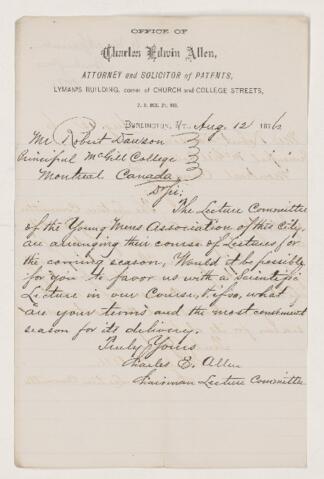 OFFICE OF
Charles Edwin Allen,
ATTORNEY and SOLICITOR of PATENTS,
LYMAN'S BUILDING, corner of CHURCH and COLLEGE STREETS,
P. O. BOX,
BURLINGTON, VT., Aug. 12 187
Mr Robert Dawson
Principal McGill College
Montreal Canada
D Sir:
The Lecture Committee
of the Young Mens Association of this City,
are arranging their course of Lectures for
the coming season, Would it be possible
for you to favor us with a Scientific
Lecture in our Course, & if so, what
are your terms and the most convenient
season for its delivery.
Truly Yours
Charles E. Allen
Chairman Lecture Committee